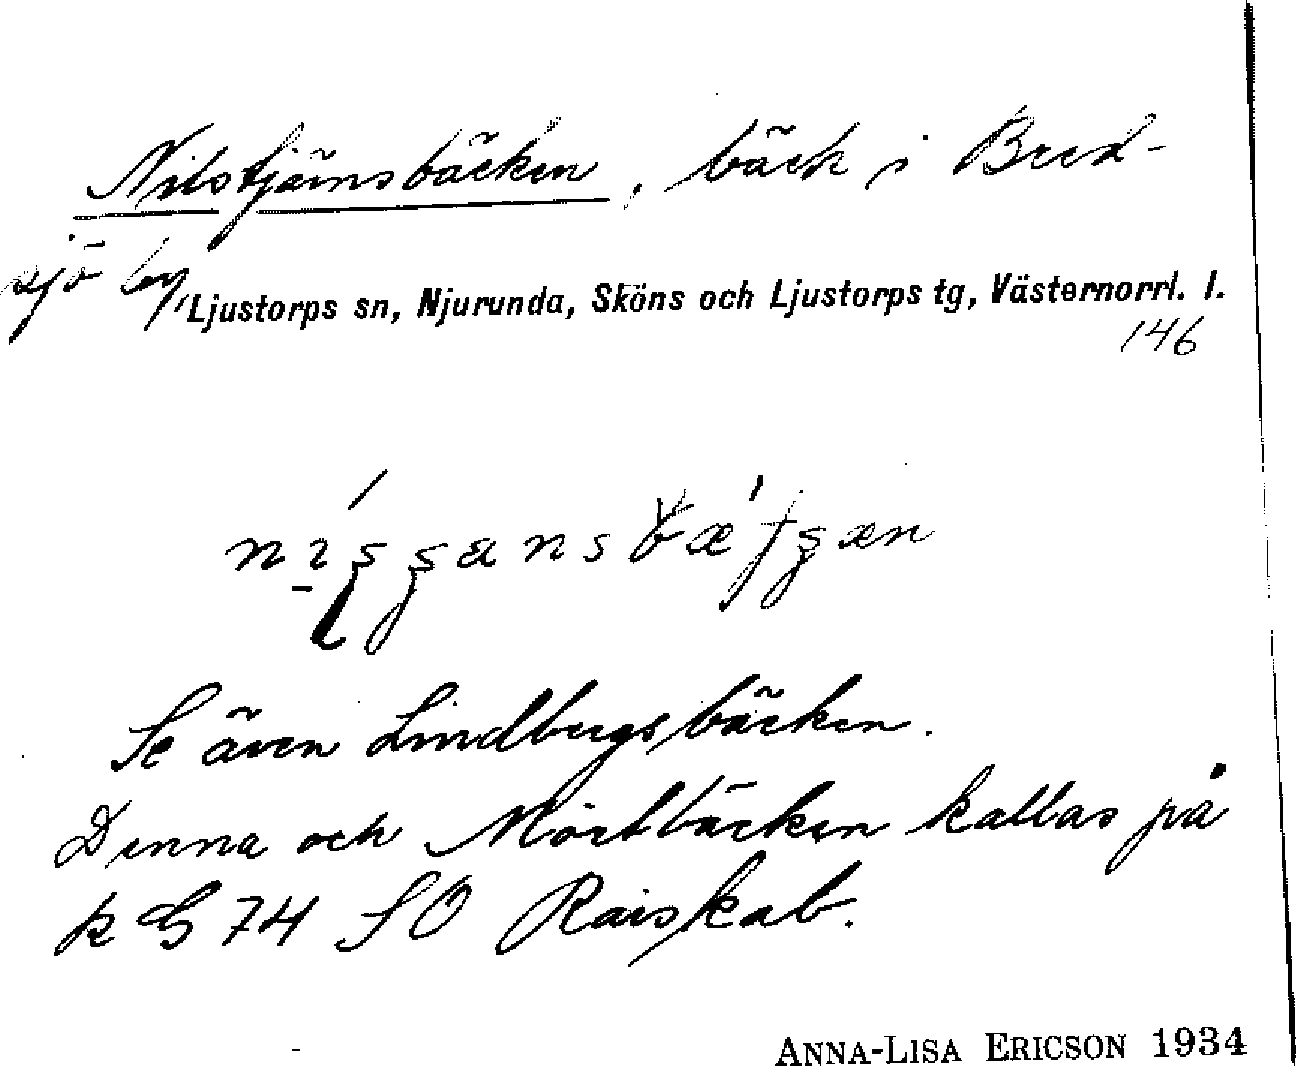 Nilstjärnsbäcken, bäck i Bred-
sjö by,
Ljustorps sn, Njurunda, Sköns och Ljustorps tg, Västernorrl. l.
146
Se även Lindbergsbäcken.
Denna och Mörtbäcken kallas på
k G 74 SO Raiskab.
ANNA-LISA ERICSON 1934